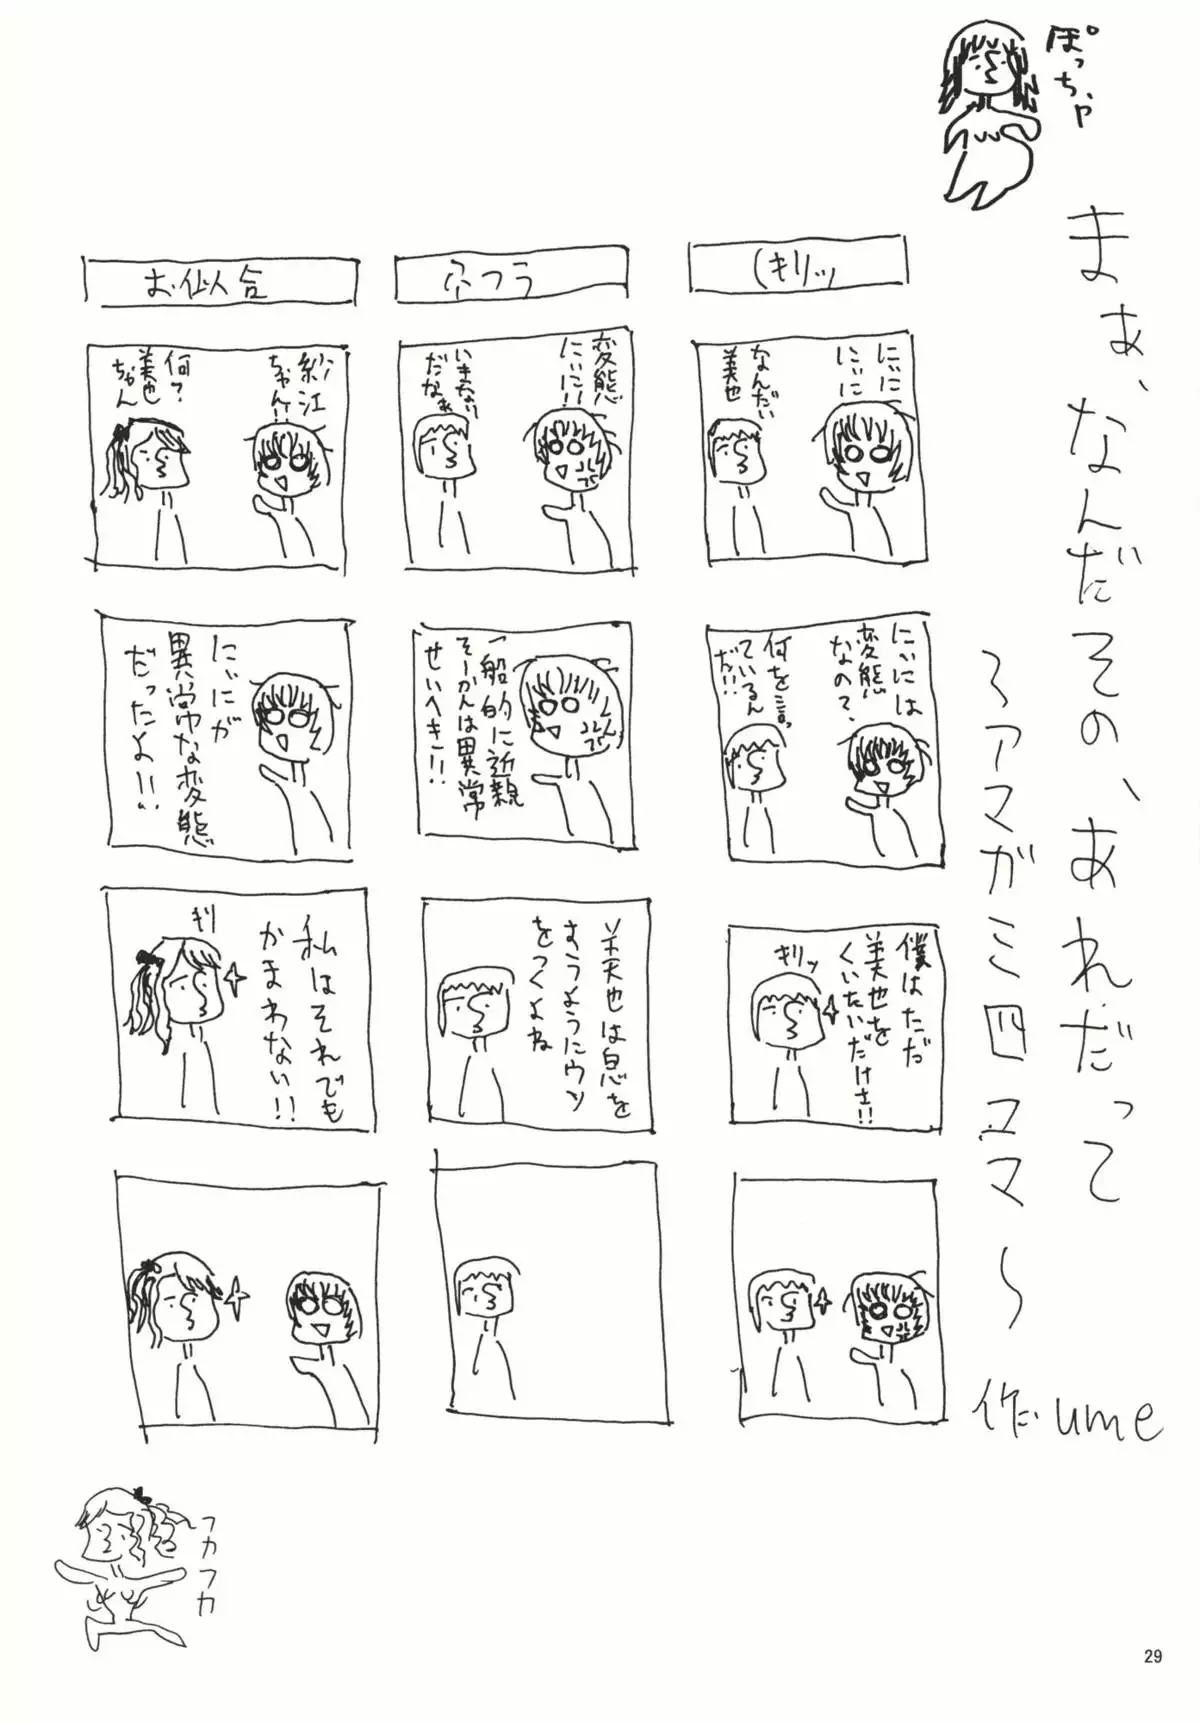 ぽっちゃ
まぁ、なんだその、あれだって
〜アマガミ四コマ〜
作 ume
(キリッ
にぃに
にぃに
なんだい
美也
にぃには
変態
なの?
何を言っ
ているん
だ!!!
僕はただ
美也を
くいたいだけさ!!
キリッ
変態
にぃに!!
いきなり
だなぁ
一般的に近親
そーかんは異常
せいへき!!
美也は息を
すうようにウソ
をつくよね
お似合
紗江
ちゃん!!
何?
美也
ちゃん
にぃにが
異常な変態
だったよ!!
私はそれでも
かまわない!!
キリ
フカフカ
29